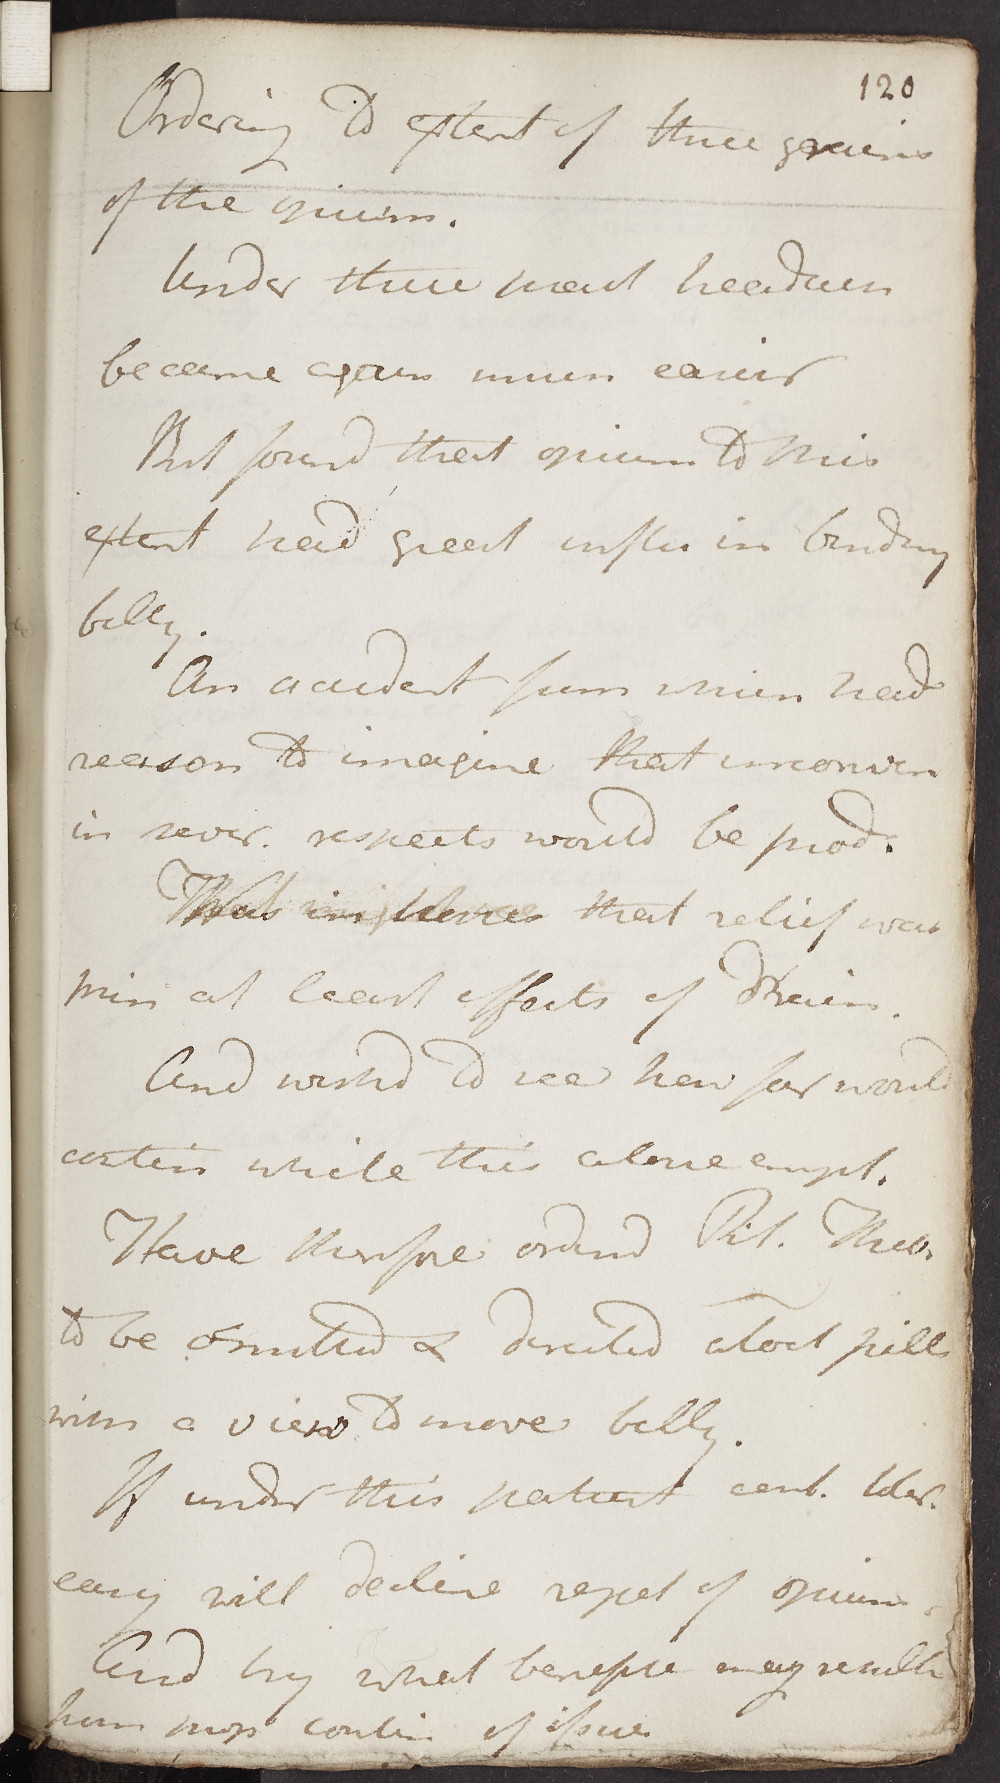 120
Ordering to extent of three grains
of the opium.
Under these headach
became again much easier
But found that opium to this
extent had great influ in binding
belly.
An accident from which had
reason to imagine that inconven
in sever. respects would be prod.
Was in that relief was
at least effects of
And wishd to see how far would
contin while this alone empl.
Have therefore orderd Pil. Theb.
to be omitted & directed aloet pills
with a view to move belly.
If under this patient cont. toler.
easy will decline repet of opium.
And try what benefit may result
from prop contin of issue